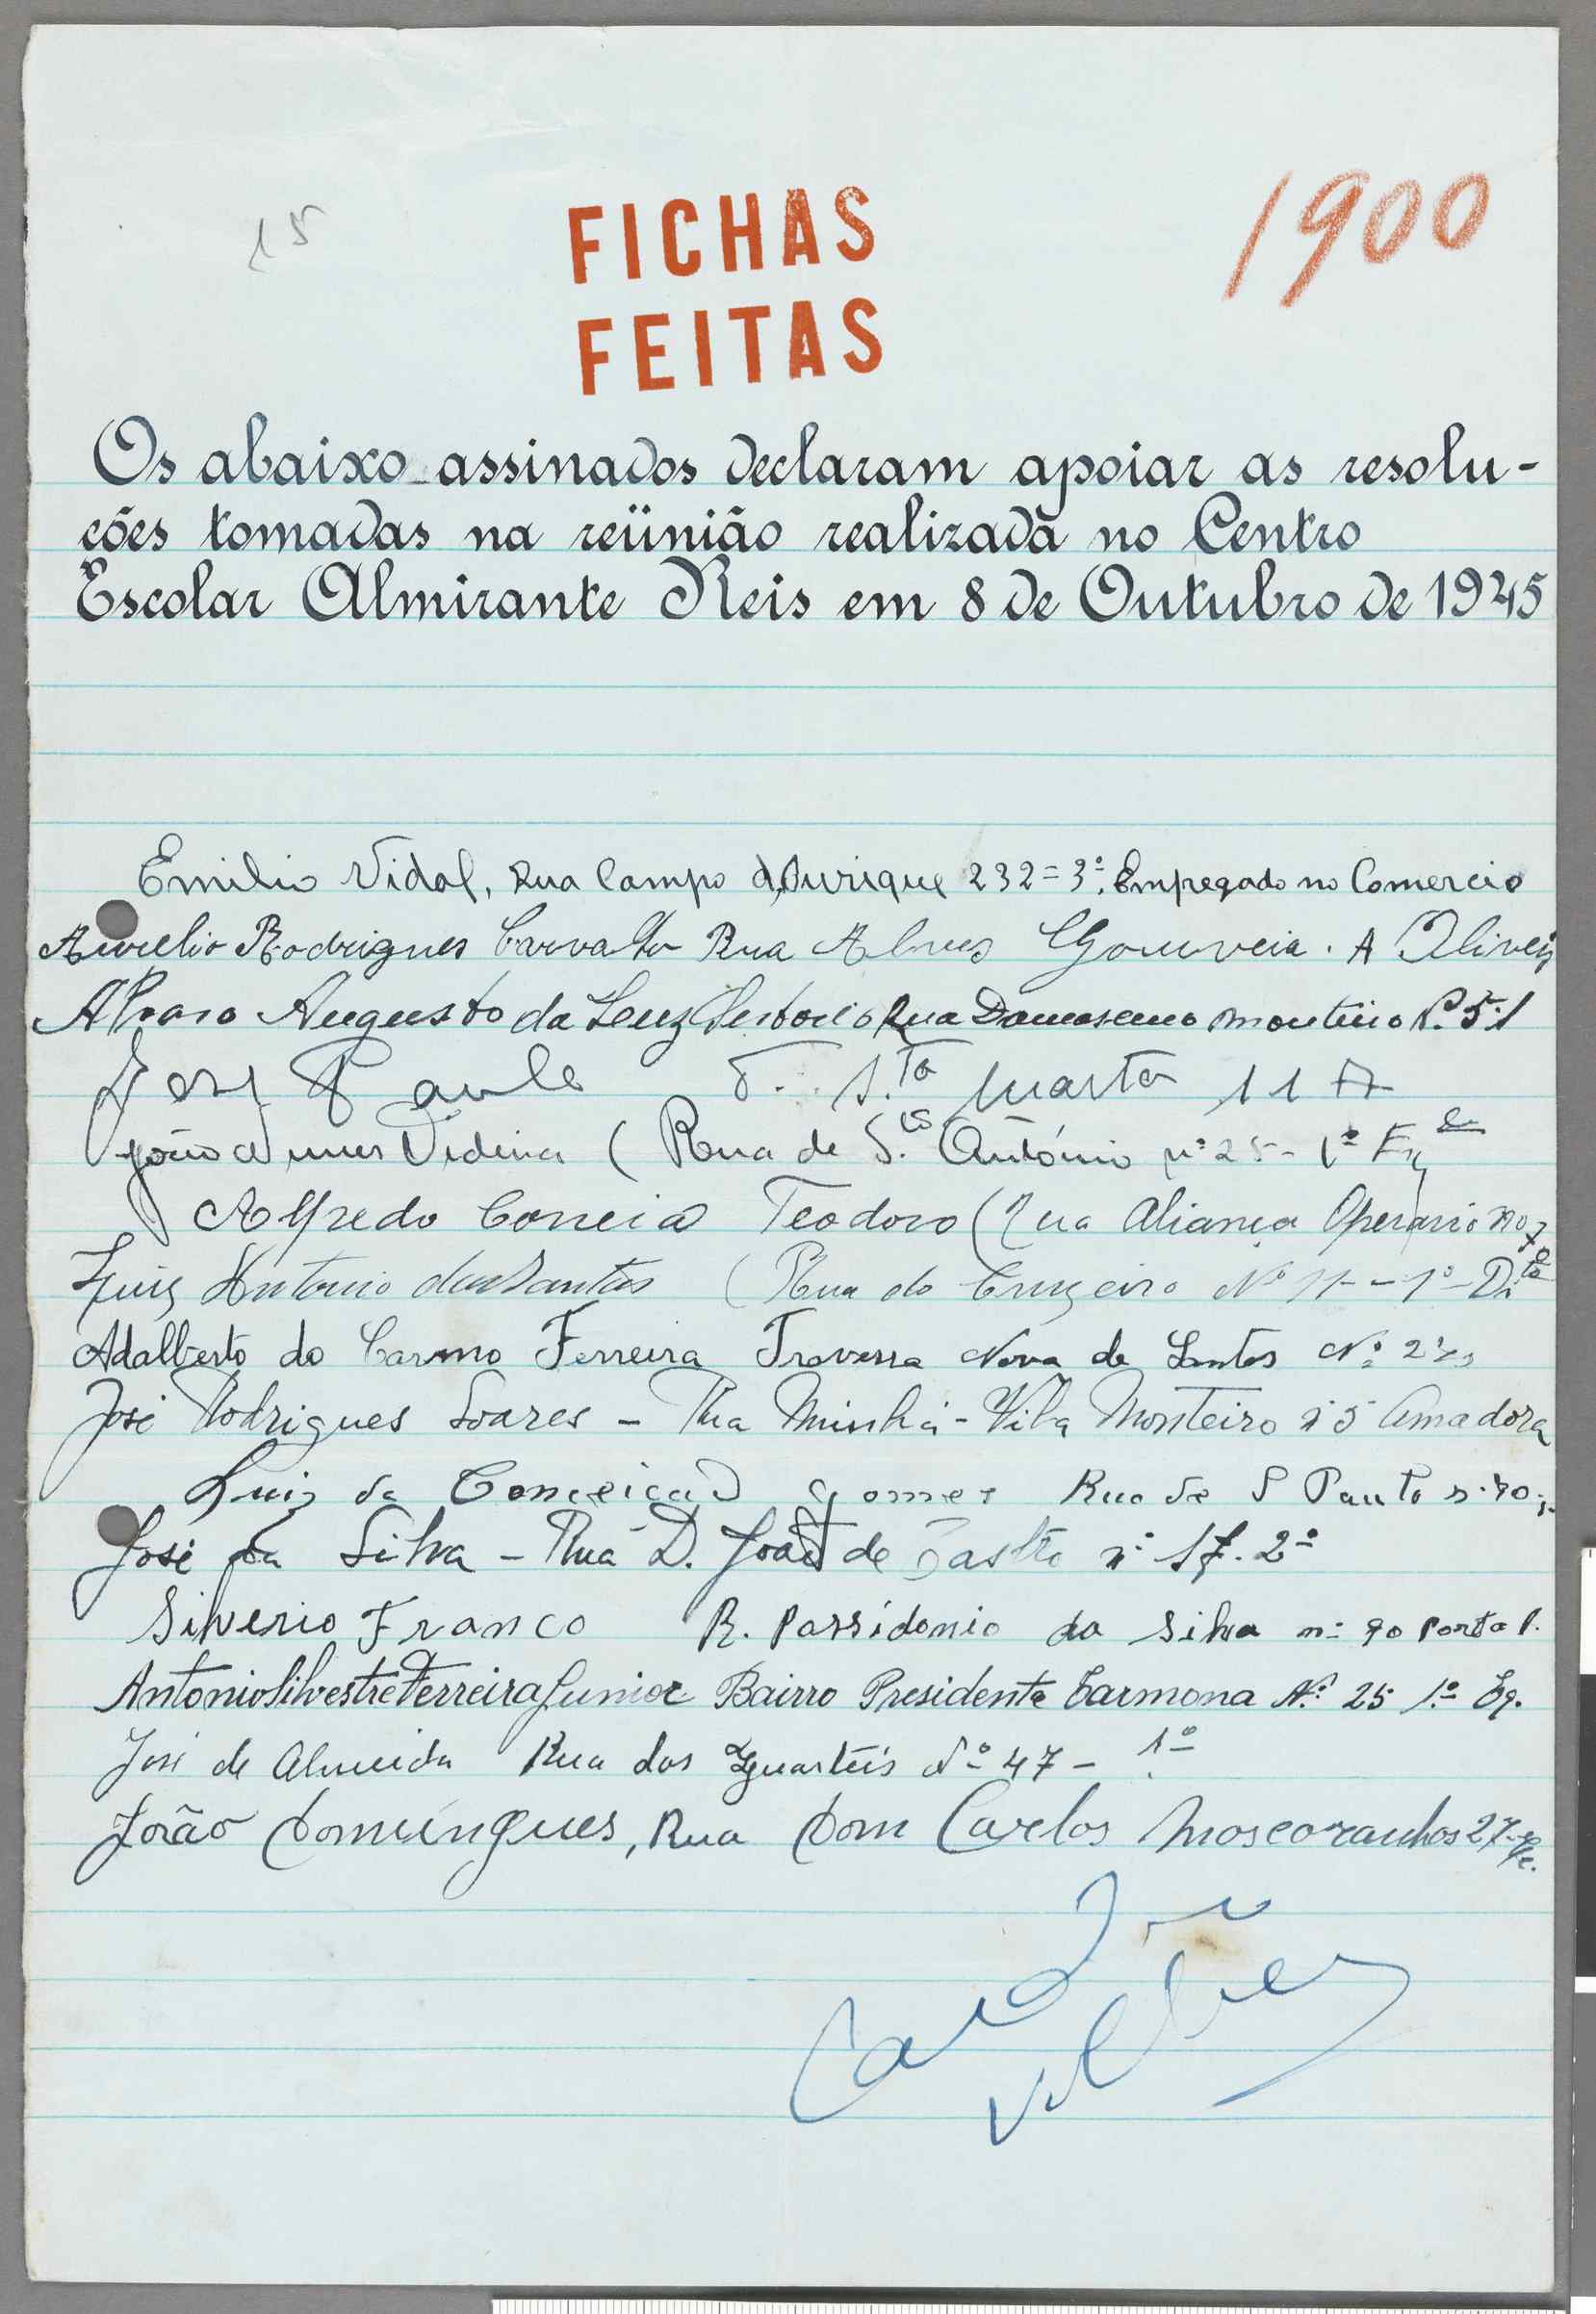 15
FICHAS
FEITAS
1900
Os abaixo assinados declaram apoiar as resolu-
ções tomadas na reünião realizada no Centro
Escolar Almirante Reis em 8 de Outubro de 1945
Emilio Vidal, Rua Campo d'Ourique 232=3º. Empregado no Comercio
Aurelio Rodrigues Carvalho Rua Alves Gouveia. A
Alvaro Augusto da Luz Rua Damasceno Monteiro Nº 51
José Paulo T. Sta Marta 11 A
João Nunes (Rua de Sto António nº 25-1º Esq
Alfredo Correia Teodoro (Rua Aliança Operaria nº
Luiz Antonio dos Santos (Rua do Cruzeiro Nº 11--1º-Dito
Adalberto do Carmo Ferreira Travessa Nova de Santos Nº
José Rodrigues Soares - Rua Minhá-Vila Monteiro nº 5 Amadora
Luiz da Conceicão Gomes Rua de S Paulo
José da Silva - Rua D. João de Castro nº 17. 2º
Silverio Franco R. Possidonio da Silva nº 90 Porta
Antonio Silvestre Ferreira Junior Bairro Presidente Carmona Nº 25 1.º Eq.
José de Almeida Rua dos Quartéis Nº 47- 1º
João Domingues, Rua Dom Carlos Mascaranhos 27